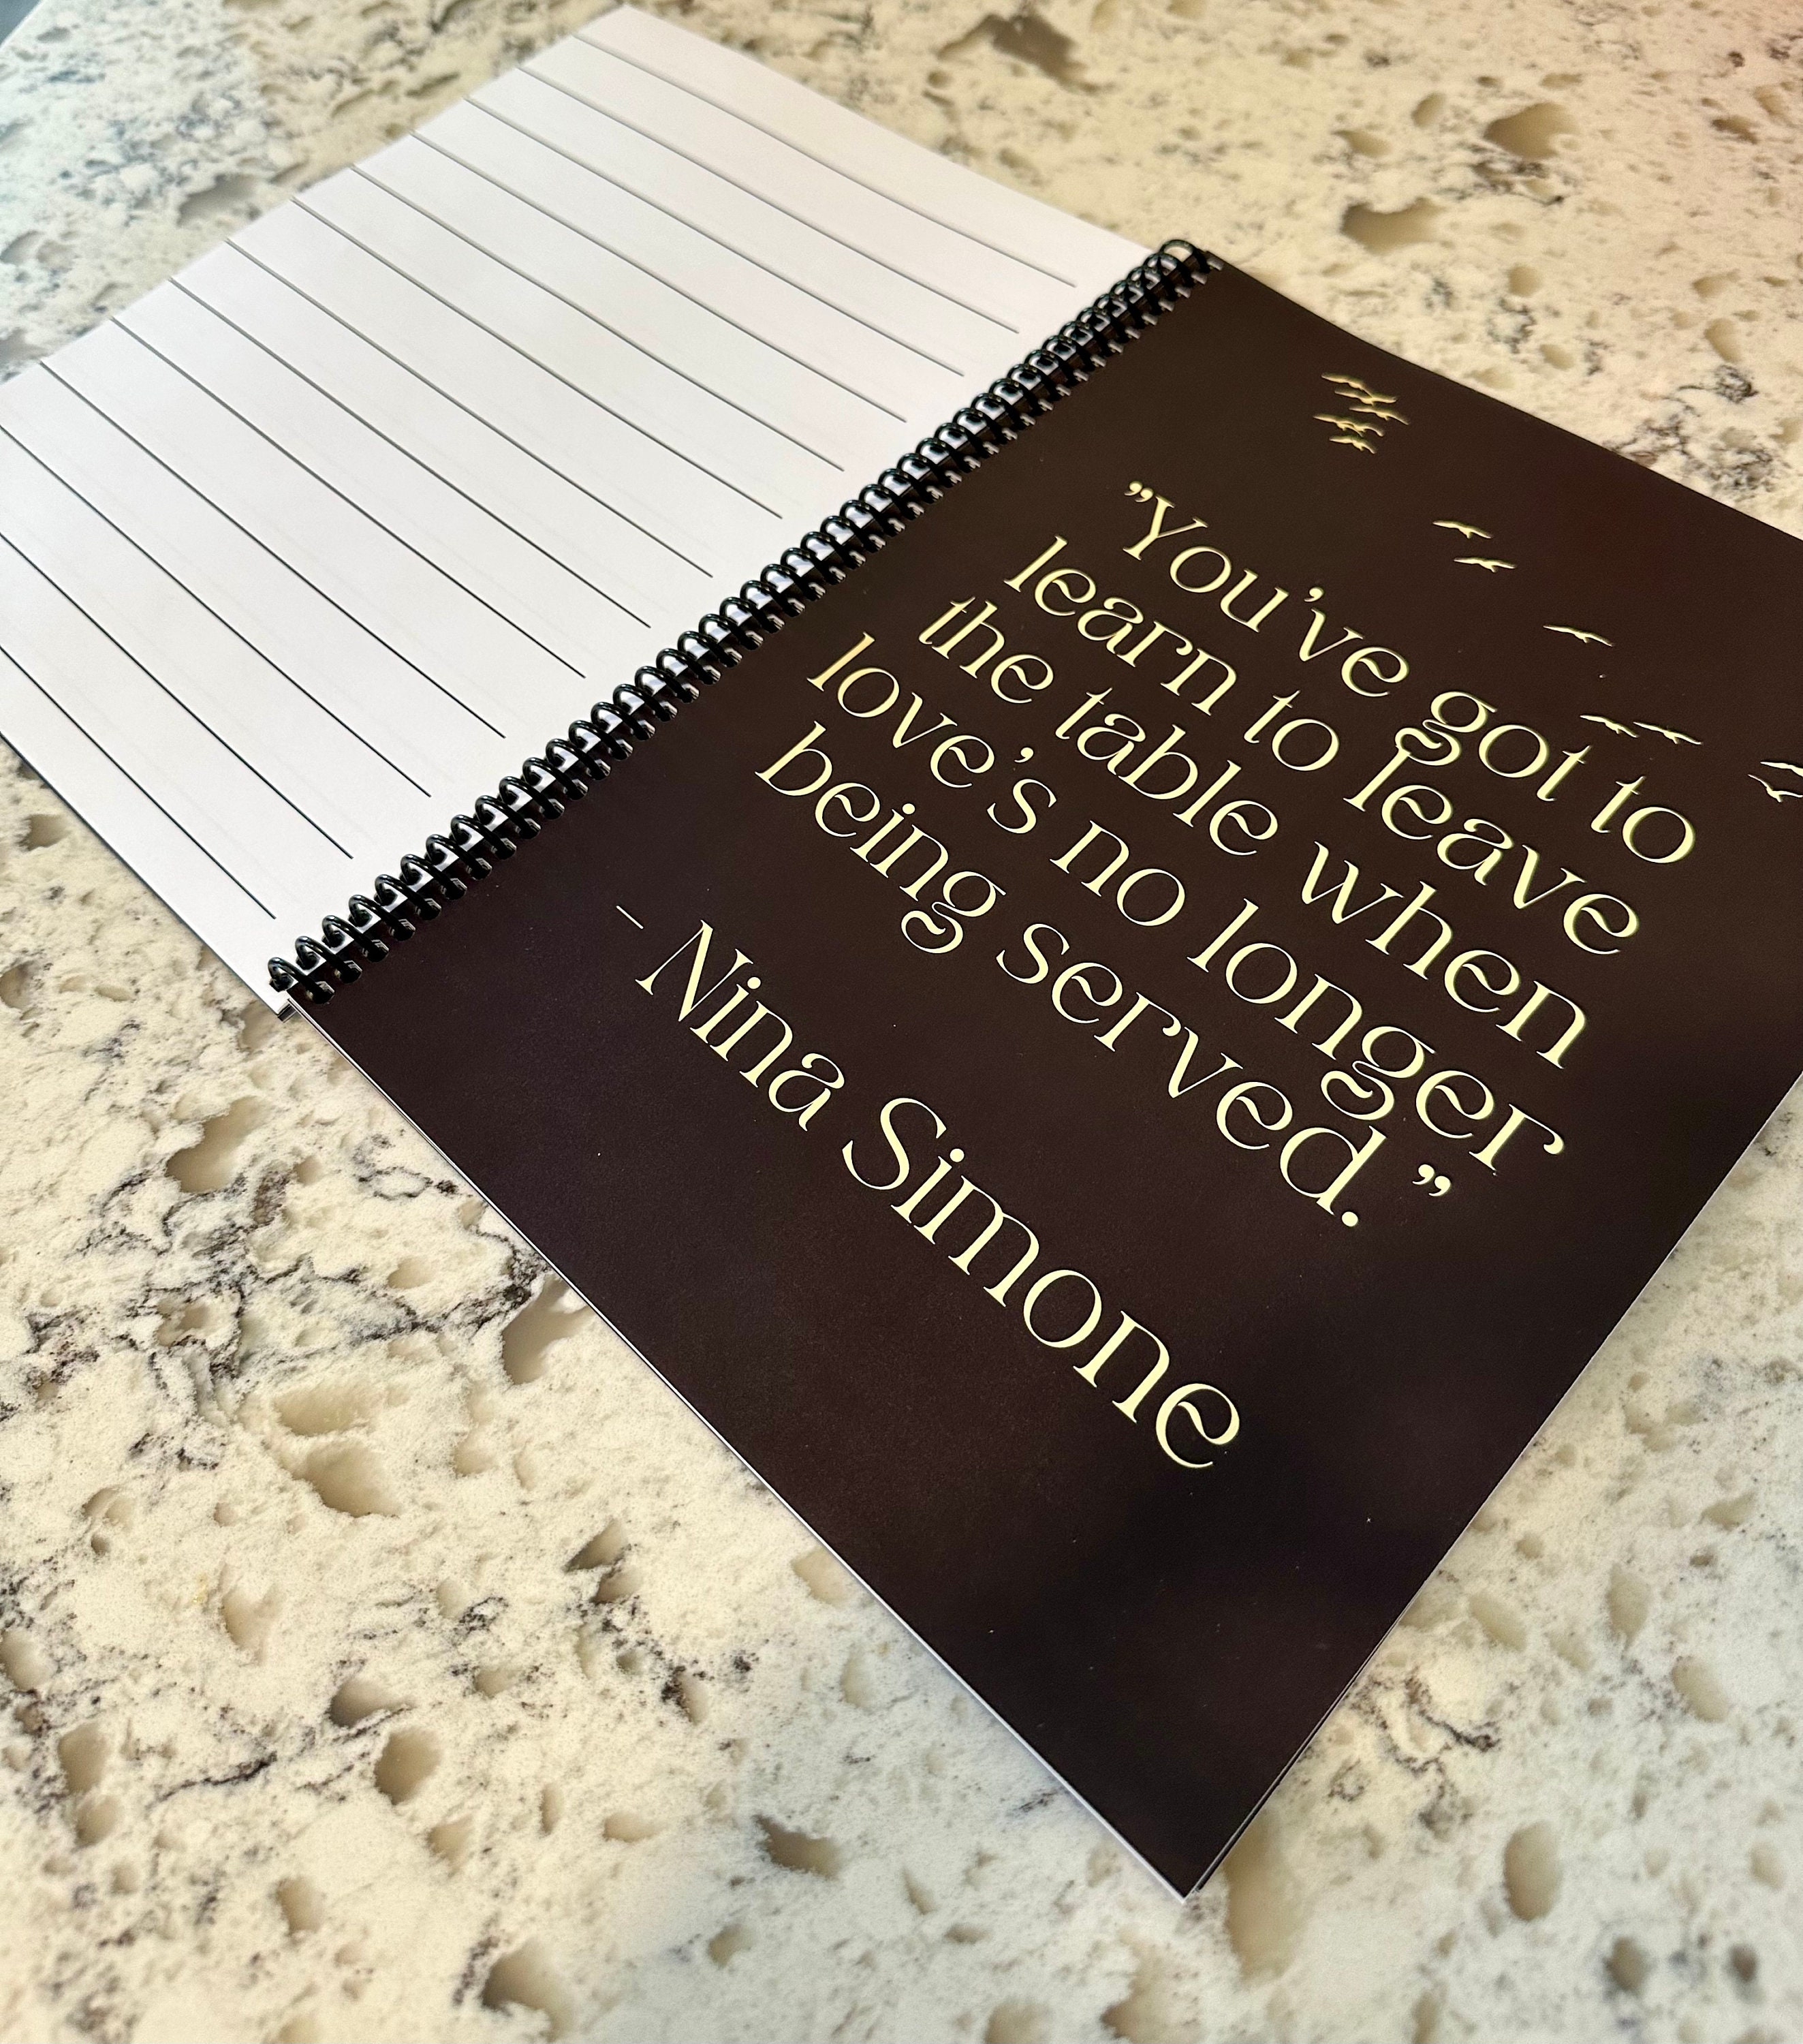 ”You’ve got to
learn to leave
the table when
love’s no longer
being served.”
– Nina Simone